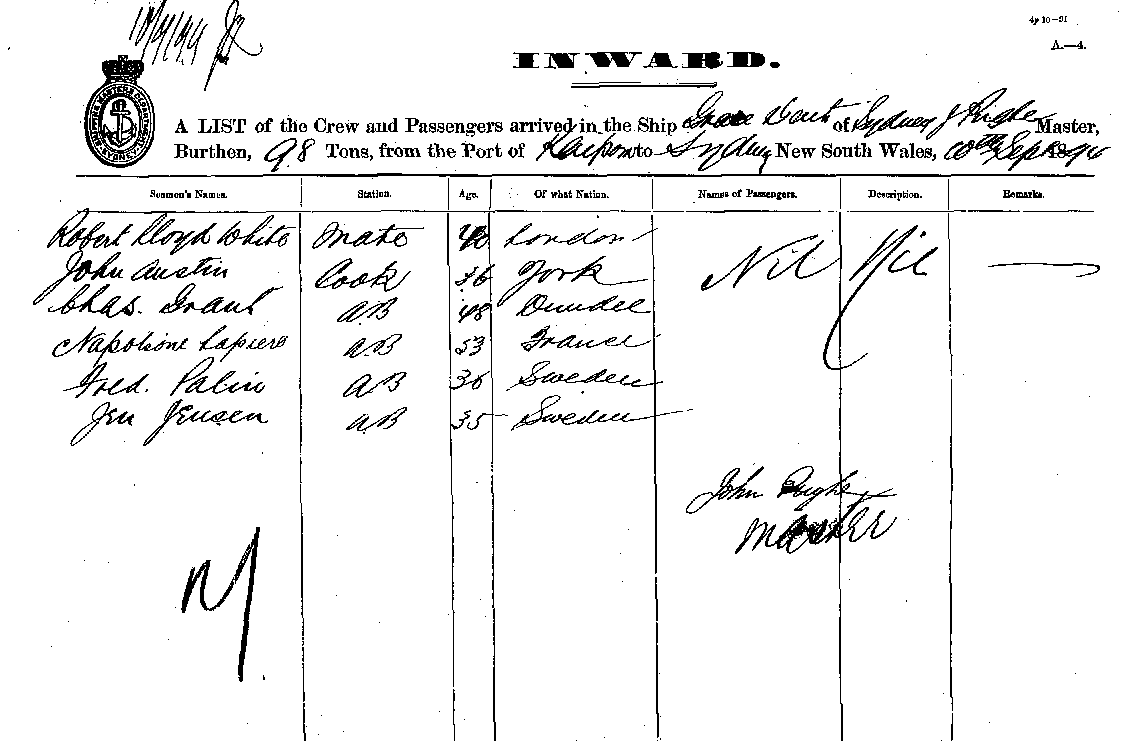 10/9/94
4p 10–91
A.—4.
INWARD.
SHIPPING MASTERS DEPARTMENT SYDNEY
A LIST of the Crew and Passengers arrived in the Ship Grace Dent of Sydney J Pughe Master,
Burthen, 98 Tons, from the Port of to Sydney New South Wales, 10th Sept 1894
Seamen's Names. Station. Age. Of what Nation. Names of Passengers. Description. Remarks.
Robert Lloyd White Mate 40 London Nil Nil —
John Austin Cook 36 York
Chas. Grant AB 48 Dundee
Napolione Lapiere AB 53 France
Fred. Palin AB 36 Sweden
Jen Jensen AB 35 Sweden
John Pughe
Master